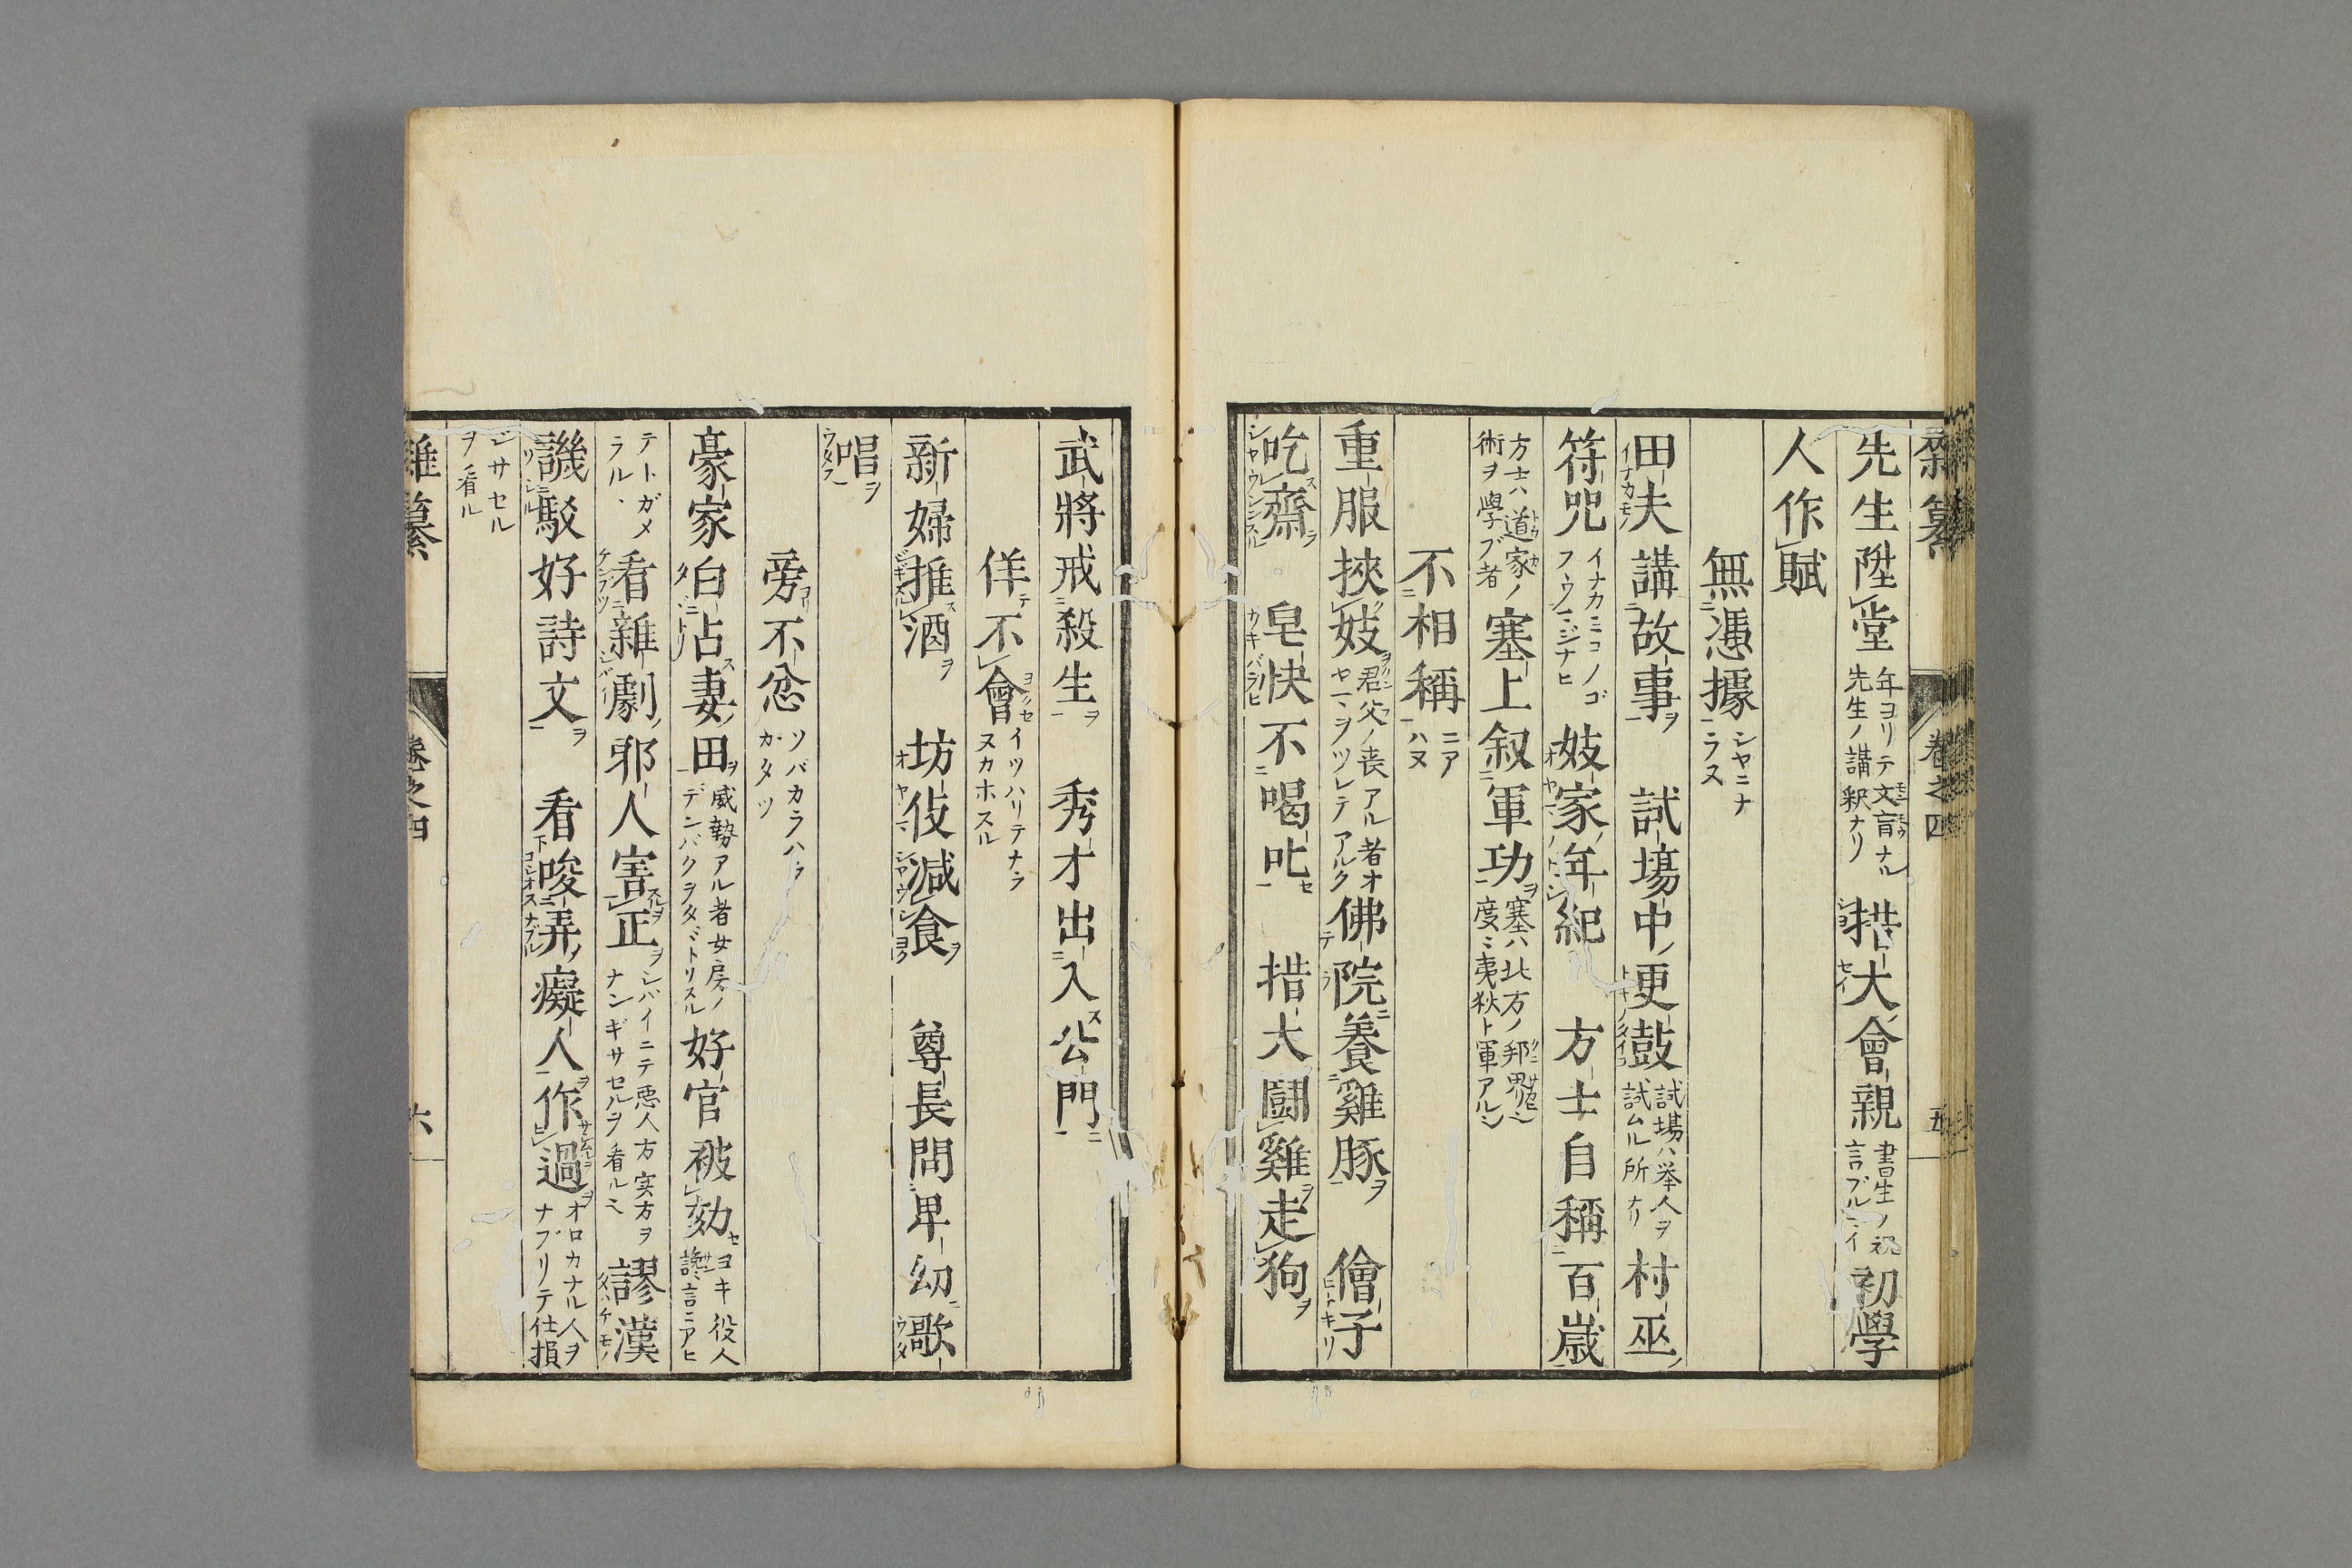 先生陞堂 年ヨリテ文盲ナル先生ノ講釈ナリ 措大會親 書生ノ祝言ブルマイ 初學
人作賦
無憑據 シヤニナラヌ
田夫講故事 試場中更鼓 試場ハ挙人ヲ試ムル所ナリ 村巫
符咒 イナカミコノゴフウマジナヒ 妓家年紀 方士自稱百歳
方士ハ道家ノ術ヲ學ブ者 塞上叙軍功 塞ハ北方ノ邦界也度ミ夷狄ト軍アルシ
不相稱 ニアハヌ
重服挾妓 君父ノ喪アル者オヤマヲツレテアルク 佛院養雞豚 儈子
吃齋 皂快不喝叱 措大鬪雞走狗
武將戒殺生 秀才出入公門
佯不會 イツハリテナラヌカホスル
新婦推酒 坊伎減食 尊長問卑幼歌
唱
旁不忿 ソバカラハラガタツ
豪家白占妻田 威勢アル者女房ノデンバクヲタヾトリスル 好官被劾 ヨキ役人讒言ニアヒ
テトガメラル、 看雜劇邪人害正 シバイニテ悪人方実方ヲナンギサセルヲ看ル 謬漢
譏駁好詩文 看唆弄癡人作過 オロカナル人ヲナブリテ仕損
ジサセルヲ看ル
雜纂 卷之四 六